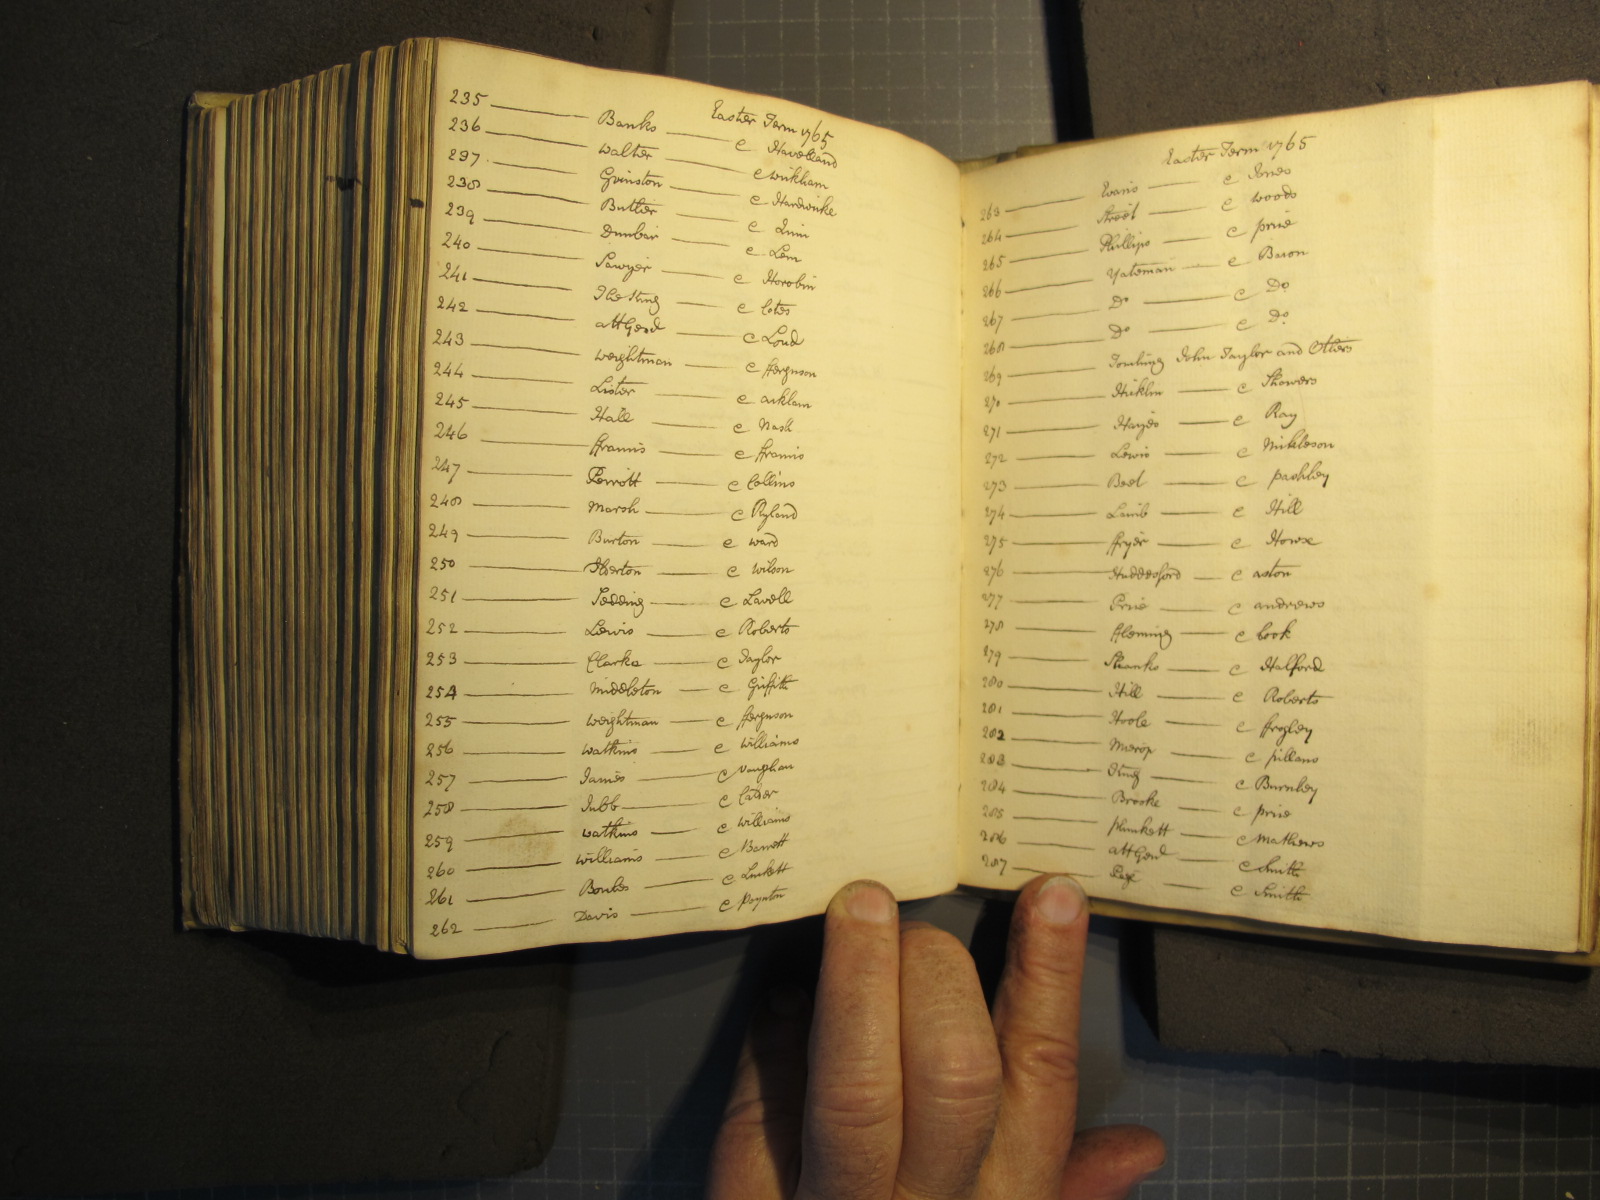 Easter Term 1765
235 Banks c Havelland
236 Walter c Wickham
237 Grinston c Hardwicke
238 Butler c Quin
239 Dunbar c Lem
240 Sawyer c Horobin
241 The King c Cotes
242 Att Genl c Loud
243 Weightman c fferguson
244 Lister c Acklam
245 Hall c Nash
246 ffrancis c ffrancis
247 Perrott c Collins
248 Marsh c Ryland
249 Burton c Ward
250 c Wilson
251 Tedding c Lavell
252 Lewis c Roberts
253 Clarke c Taylor
254 Middleton c Griffith
255 Weightman c fferguson
256 Watkins c Williams
257 James c Vaughan
258 Jubb c Cater
259 Watkins c Williams
260 Williams c Barrett
261 c Luckett
262 Davis c Poynton
Easter Term 1765
263 Evans c Jones
264 Street c Woods
265 Phillips c Price
266 Yateman c Baron
267 Do c Do
268 Do c Do
269 Touching John Taylor and Others
270 Hicklin c Showers
271 Hayes c Ray
272 Lewis c Mickleson
273 Beet c Pashley
274 Lamb c Hill
275 ffryer c Howse
276 Huddesford c Aston
277 Price c Andrews
278 ffleming c Cook
279 Shanks c Halford
280 Hill c Roberts
281 Hoole c ffrogley
282 c Pillans
283 King c Burnley
284 Brooke c Price
285 Plunkett c Mathews
286 Att Genl c Smith
287 Page c Smith